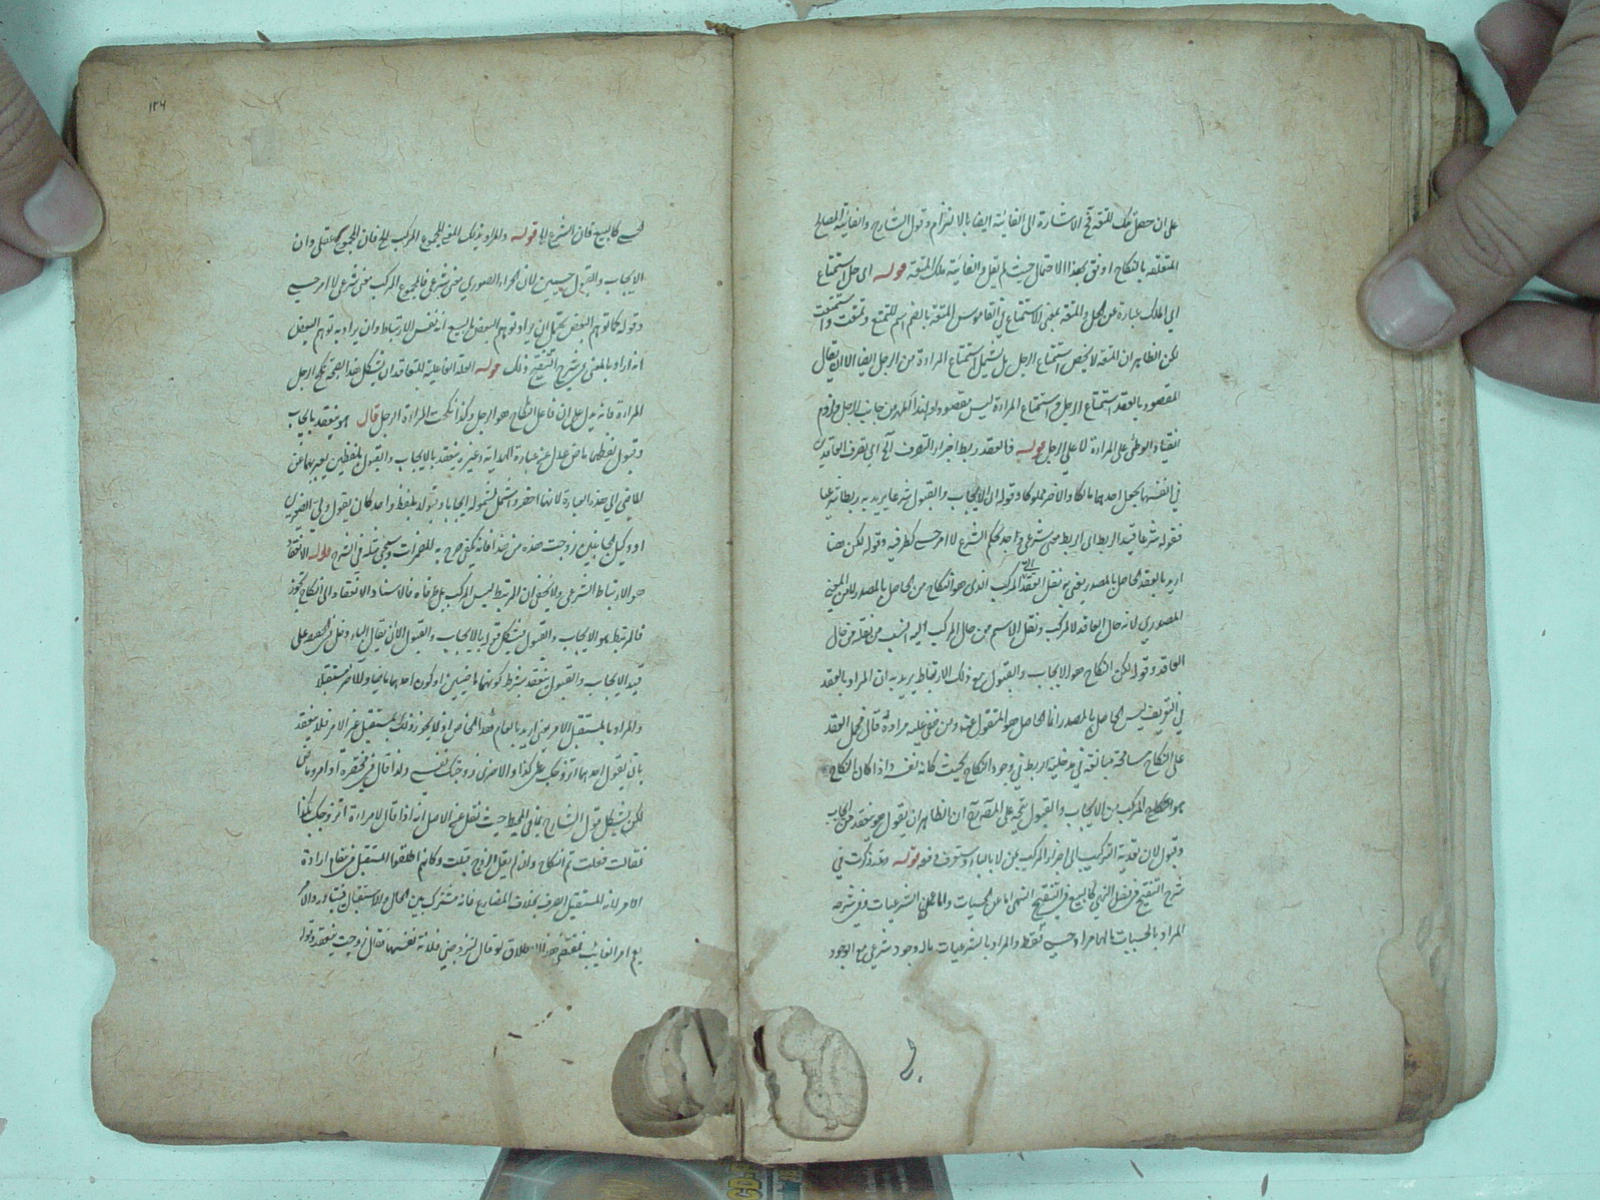 على ان حصل ملك المتعة في الاشارة الى الغائية ايضا بالالتزام وقول الشارح والغائية المصالح
المتعلقة بالنكاح اوفق بهذا الاحتمال حيث لم يقل والغائية ملك المتعة قوله اى حل استمتاع
اى الملك عبارة عن الحل والمتعة بمعنى الاستمتاع في القاموس المتعة بالضم اسم للتمتع وتمتعت واستمتعت
لكن الظاهر ان المتعة لا يخص استمتاع الرجل بل يشمل استمتاع المراة من الرجل ايضا الا ان يقال
المقصود بالعقد استمتاع الرجل واستمتاع المراة ليس مقصودا ولذا المهر من جانب الرجل ولزم
انقياد الوطى على المراة لا على الرجل قوله فالعقد ربط اجزاء التصرف الخ اى تصرف العاقدين
في انفسهما بجعل احدهما مالكا والآخر مملوكا وقوله اى الايجاب والقبول شرعا يريد به ربطا شرعيا
فقوله شرعا قيد الربط اى الربط معنى شرعى وجد بحكم الشرع لا امر حسى كطرفيه وقوله لكن هنا
اريد بالعقد الحاصل بالمصدر يعنى به نقل العقد الى المركب الذى هو النكاح من الحاصل بالمصدر لا من المعنى
المصدرى لانه حال العاقد لا المركب ونقل الاسم من حال المركب اليه انسب من نقله من حال
العاقد وقوله لكن النكاح هو الايجاب والقبول مع ذلك الارتباط يريد به ان المراد بالعقد
في التعريف ليس الحاصل بالمصدر انما الحاصل هو المنقول عنه ومن خفى عليه مراده قال فحمل العقد
على النكاح مسامحة مبالغة في مدخلية الربط في وجود النكاح بحيث كانه نفسه واذا كان النكاح
هو المركب من الايجاب والقبول يتجه على المصنف ان الظاهر ان يقول هو ينعقد من ايجاب
وقبول لان تعدية التركيب الى اجزاء المركب بمن لا بالباء وستعرف دفعه قوله وقد ذكرت في
شرح التنقيح في فصل النهى كالبيع في التنقيح النهى اما عن الحسيات واما عن الشرعيات وفي شرحه
المراد بالحسيات ما لها وجود حسى فقط والمراد بالشرعيات ما له وجود شرعى مع الوجود
١٢٦
الحسى كالبيع فان الشرع الخ قوله والمراد بذلك المعنى المجموع المركب الخ فان المجموع عقلى وان
الايجاب والقبول حسيين لان الجزء الصورى معنى شرعى فالمجموع المركب معنى شرعى لا امر حسى
وقوله كما توهم البعض يحتمل ان يراد توهم البعض في البيع انه نفس الارتباط وان يراد به توهم البعض
انه اراد بالمعنى في شرح التنقيح ذلك قوله العلة الفاعلية المتعاقدان يشكل هذا بصحة نكح الرجل
المراة فانه يدل على ان فاعل النكاح هو الرجل وكذا نكحت المراة الرجل قال هو ينعقد بايجاب
وقبول لفظهما ماض عدل عن عبارة الهداية وغيره ينعقد بالايجاب والقبول بلفظين يعبر بهما عن
الماضى الى هذه العبارة لانها اخصر واشمل لشموله ايجابا وقبولا بلفظ واحد كان يقول ولى الصغيرين
او وكيل الجانبين زوجت هذه من هذا فانه يكفى صرح به في المضمرات وسيجئ مثله في الشرح قوله الانعقاد
هو الارتباط الشرعى ولا يخفى ان المرتبط ليس المركب بل طرفاه فالاسناد الانعقاد الى النكاح تجوز
فالمرتبط هو الايجاب والقبول يشكل قوله بالايجاب والقبول الا ان يقال الباء دخل على
قيد الايجاب والقبول ينعقد بشرط كونهما ماضيين او كون احدهما ماضيا والآخر مستقبلا
والمراد بالمستقبل الامر يعنى اريد بالعام هذا الخاص اذ لا يجوز ذلك بمستقبل غير الامر فلا ينعقد
بان يقول احدهما اتزوجك على كذا والاخرى زوجتك نفسى ولذا قال في مختصره او امر وماض
لكن يشكل قول الشارح بما في المحيط حيث نقل عن الاصل انه اذا قال لامراة اتزوجك بكذا
فقالت فعلت تم النكاح وان لم يقل الزوج قبلت وكانه اطلق المستقبل في مقام ارادة
الامر لانه للمستقبل الصرف بخلاف المضارع فانه مشترك بين الحال والاستقبال فيتبادر والامر
يعم امر الغائب فمقتضى هذا الاطلاق لو قال لتزوجنى فلانة نفسها فقال زوجت ينعقد وقوله